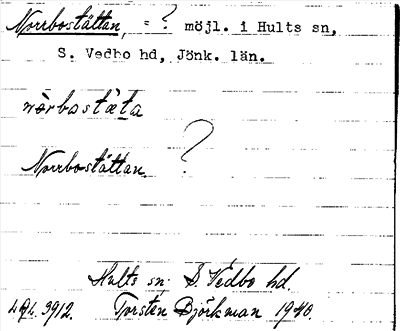 Norrbostättan, = ? möjl. i Hults sn,
S. Vedbo hd, Jönk. län.
nòrbostæ̀ta
Norrbostättan. ?
Hults sn. S. Vedbo hd.
3912. Torsten Björkman 1940.